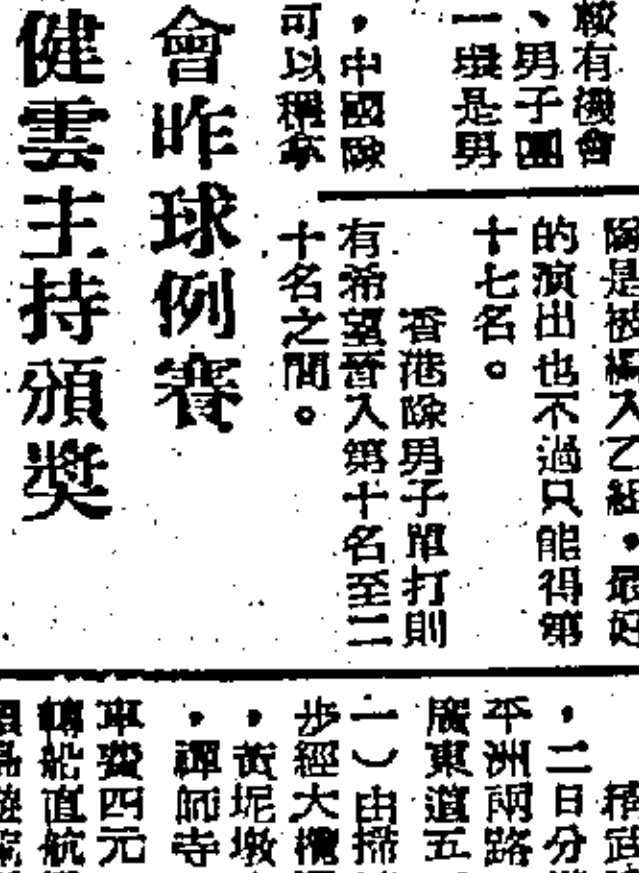 較有機會
、男子團
一環是男
，中國隊
可以穩拿
隊是被編入乙組，最好
的演出也不過只能得第
十七名。
香港隊男子單打則
有希望晉入第十名至二
十名之間。
會昨球例賽
健雲主持頒獎
，二日分
平洲兩路
廣東道五
一）由掃
步經大欖
，黃坭墩
，禪師寺
車費四元
轉船直航